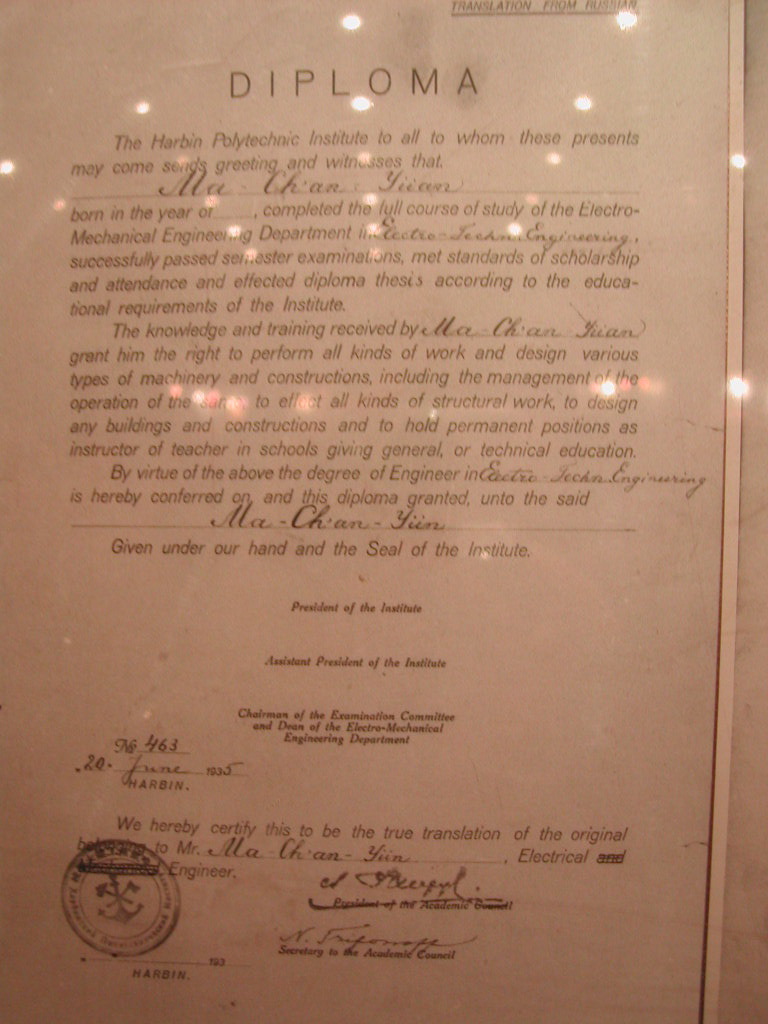 TRANSLATION FROM RUSSIAN
DIPLOMA
The Harbin Polytechnic Institute to all to whom these presents
may come sends greeting and witnesses that.
Ma-Ch'an-Yüan
born in the year of , completed the full course of study of the Electro-
Mechanical Engineering Department in Electro-Techn. Engineering,
successfully passed semester examinations, met standards of scholarship
and attendance and effected diploma thesis according to the educa-
tional requirements of the Institute.
The knowledge and training received by Ma-Ch'an Yüan
grant him the right to perform all kinds of work and design various
types of machinery and constructions, including the management of the
operation of the same, to effect all kinds of structural work, to design
any buildings and constructions and to hold permanent positions as
instructor of teacher in schools giving general, or technical education.
By virtue of the above the degree of Engineer in Electro-Techn. Engineering
is hereby conferred on, and this diploma granted, unto the said
Ma-Ch'an-Yün
Given under our hand and the Seal of the Institute.
President of the Institute
Assistant President of the Institute
Chairman of the Examination Committee
and Dean of the Electro-Mechanical
Engineering Department
№ 463
20 June 1935
HARBIN.
We hereby certify this to be the true translation of the original
belonging to Mr. Ma-Ch'an-Yün, Electrical and
Engineer.
President of the Academic Council
Secretary to the Academic Council
193
HARBIN.